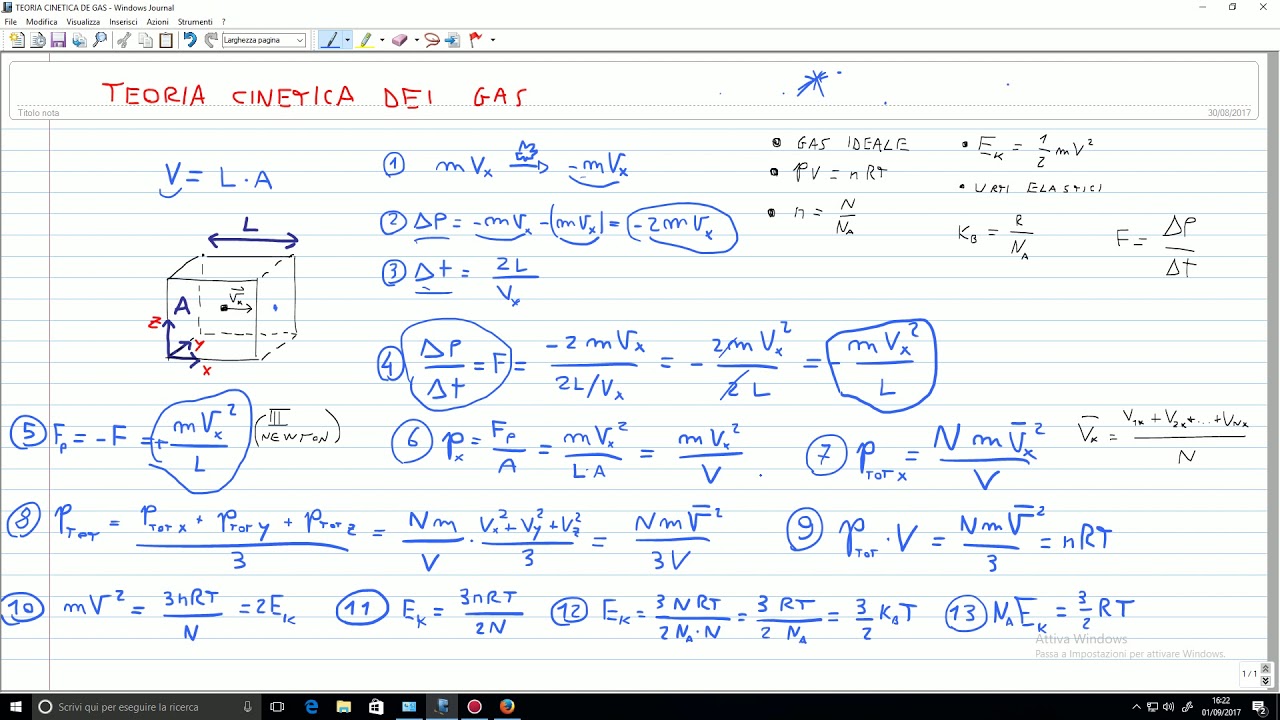 TEORIA CINETICA DE GAS - Windows Journal
File Modifica Visualizza Inserisci Azioni Strumenti ?
Larghezza pagina
TEORIA CINETICA DEI GAS
Titolo nota
30/08/2017
V = L · A
L
A
Vx
Z
Y
X
① mVx ⟹ -mVx
② ΔP = -mVx - (mVx) = -2mVx
③ Δt = 2L/Vx
• GAS IDEALE
• PV = nRT
• n = N/NA
• EK = 1/2 mV²
• URTI ELASTICI
KB = R/NA
F = ΔP/Δt
④ ΔP/Δt = F = -2mVx / 2L/Vx = - 2mVx²/2L = - mVx²/L
⑤ Fp = -F = + mVx²/L (III NEWTON)
⑥ px = Fp/A = mVx²/L·A = mVx²/V .
⑦ pTOT x = N m V̄x²/V
V̄x = V1x + V2x + ... + VNx / N
⑧ pTOT = pTOT x + pTOT y + pTOT z / 3 = Nm/V · Vx² + Vy² + Vz² / 3 = NmV̄²/3V
⑨ pTOT · V = NmV̄²/3 = nRT
⑩ mV² = 3nRT/N = 2EK
⑪ EK = 3nRT/2N
⑫ EK = 3NRT/2NA·N = 3RT/2NA = 3/2 KBT
⑬ NA EK = 3/2 RT
Attiva Windows
Passa a Impostazioni per attivare Windows.
1 / 1
Scrivi qui per eseguire la ricerca
16:22
01/09/2017
2